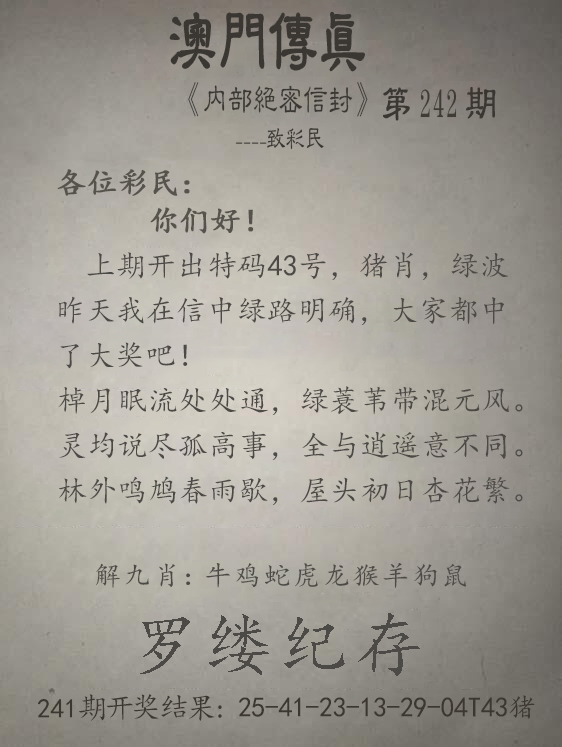 澳門傳真
《内部絕密信封》第242期
----致彩民
各位彩民：
你们好！
上期开出特码43号，猪肖，绿波
昨天我在信中绿路明确，大家都中
了大奖吧！
棹月眠流处处通，绿蓑苇带混元风。
灵均说尽孤高事，全与逍遥意不同。
林外鸣鸠春雨歇，屋头初日杏花繁。
解九肖：牛鸡蛇虎龙猴羊狗鼠
罗缕纪存
241期开奖结果：25-41-23-13-29-04T43猪